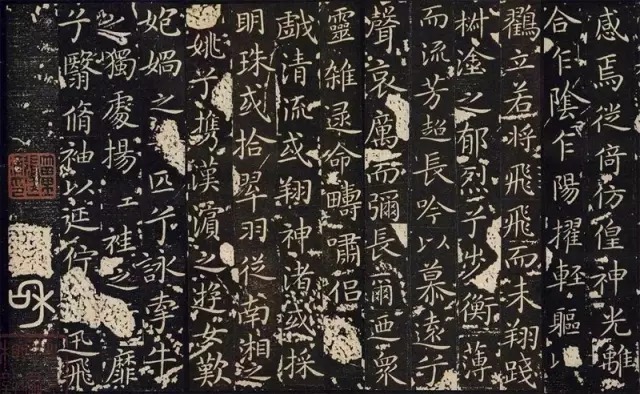 感焉徙倚仿偟神光離
合乍陰乍陽擢輕軀以
鸖立若將飛飛而未翔踐
椒塗之郁烈兮步衡薄
而流芳超長吟以慕遠兮
聲哀厲而彌長爾迺衆
靈雜遝命疇嘯侶
戲清流或翔神渚或採
明珠或拾翠羽從南湘之
姚兮携漢濱之遊女歎
媧之匹兮詠牽牛
之獨處揚袿之靡
兮翳脩袖以延佇迅飛